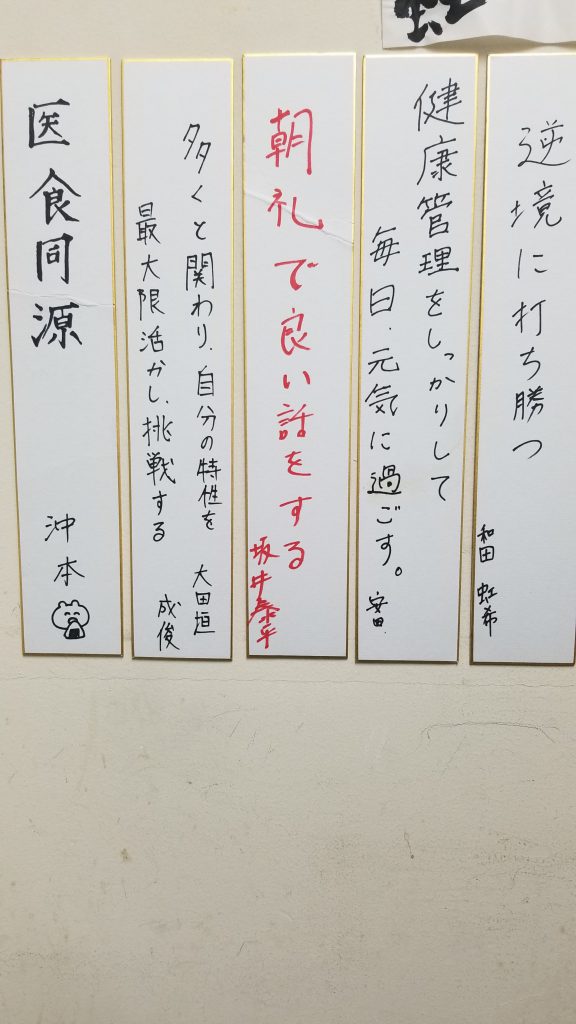 逆境に打ち勝つ
和田 虹希
健康管理をしっかりして
毎日、元気に過ごす。
安田
朝礼で良い話をする
坂井泰平
多くと関わり、自分の特性を
最大限活かし、挑戦する
大田垣
成俊
医食同源
沖本